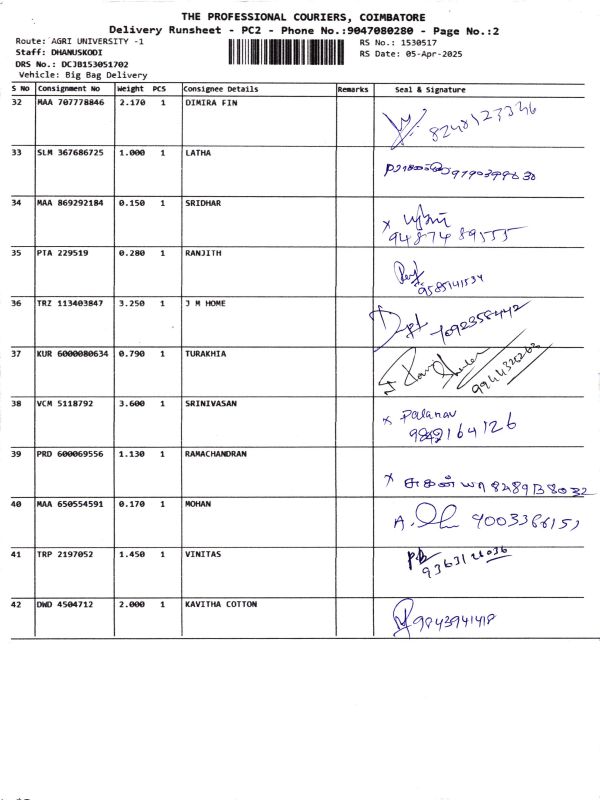 THE PROFESSIONAL COURIERS, COIMBATORE
Delivery Runsheet - PC2 - Phone No.:9047080280 - Page No.:2
Route: AGRI UNIVERSITY -1 RS No.: 1530517
Staff: DHANUSKODI RS Date: 05-Apr-2025
DRS No.: DCJB153051702
Vehicle: Big Bag Delivery
S No Consignment No Weight PCS Consignee Details Remarks Seal & Signature
32 MAA 707778846 2.170 1 DIMIRA FIN
8248123346
33 SLM 367686725 1.000 1 LATHA
34 MAA 869292184 0.150 1 SRIDHAR
x
9487489555
35 PTA 229519 0.280 1 RANJITH
9585141534
36 TRZ 113403847 3.250 1 J M HOME
7092358442
37 KUR 6000080634 0.790 1 TURAKHIA
9944326263
38 VCM 5118792 3.600 1 SRINIVASAN
x Palanav
9842164126
39 PRD 600069556 1.130 1 RAMACHANDRAN
x சுகன்யா
40 MAA 650554591 0.170 1 MOHAN
A. 9003366151
41 TRP 2197052 1.450 1 VINITAS
42 DWD 4504712 2.000 1 KAVITHA COTTON
9843941418